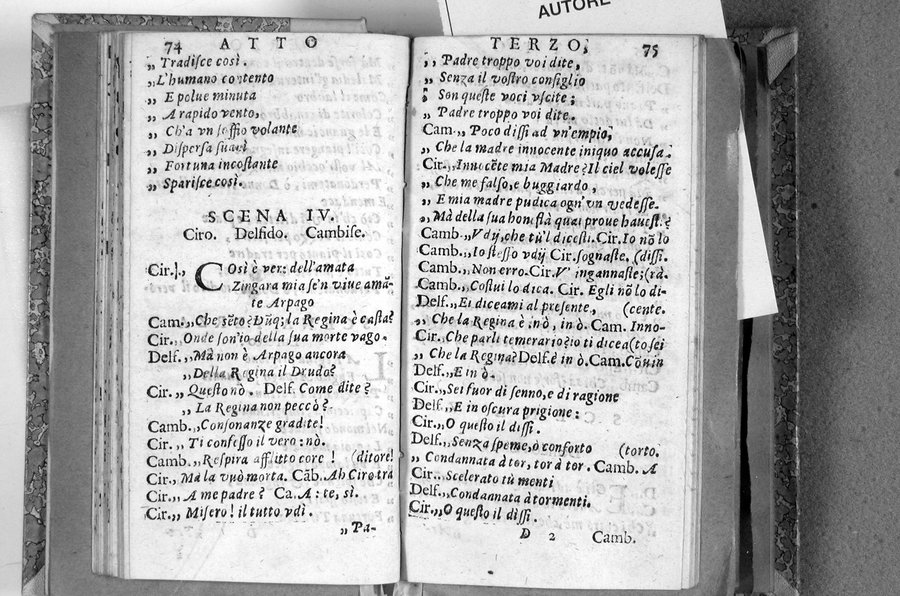 AUTORE
74 ATTO
„ Tradisce così.
„ L'humano contento
„ E polue minuta
„ A rapido vento,
„ Ch'a vn soffio volante
„ Dispersa
„ Fortuna incostante
„ Sparisce così.
SCENA IV.
Ciro. Delfido. Cambise.
Cir.„ COsì è ver: dell'amata
Zingara mia se'n viue amã-
te Arpago
Cam.„ Che sẽto? Dũq; la Regina è casta?
Cir.„ Onde son'io della sua morte vago.
Delf.„ Mà non è Arpago ancora
„ Della Regina il Drudo?
Cir.„ Questo nò. Delf. Come dite?
„ La Regina non peccò?
Camb.„ Consonanze gradite!
Cir.„ Ti confesso il vero: nò.
Camb.„ Respira afflitto core! (ditore!
Cir.„ Mà la vuò morta. Cãb. Ah Ciro tra
Cir.„ A me padre? Ca. A: te, sì.
Cir.„ Misero! il tutto vdì.
„ Pa-
TERZO, 75
„ Padre troppo voi dite,
„ Senza il vostro consiglio
„ Son queste voci vscite;
„ Padre troppo voi dite.
Cam.„ Poco dissi ad vn'empio,
„ Che la madre innocente iniquo accusa.
Cir.„ Innocẽte mia Madre? Il ciel volesse
„ Che me falso, e buggiardo,
„ E mia madre pudica ogn'vn vedesse.
„ Mà della sua honestà quai proue hauest.?
Camb.„ Vdij, che tù'l dicesti. Cir. Io nõ lo
Camb.„ Io stesso vdij Cir. sognaste. (dissi.
Camb.„ Non erro. Cir. V' ingannaste; (rà.
Camb.„ Costui lo dica. Cir. Egli nõ lo di-
Delf.„ Ei diceami al presente, (cente.
„ Che la Regina è nò, in ò. Cam. Inno-
Cir.„ Che parli temerario? io ti dicea (to sei
„ Che la Regina? Delf. è in ò. Cam. Cõuin
Delf.„ E in ò.
Cir.„ Sei fuor di senno, e di ragione
Delf.„ E in oscura prigione:
Cir.„ O questo il dissi.
Delf.„ Senza speme, ò conforto (torto.
„ Condannata à tor, tor à tor. Camb. A
Cir.„ Scelerato tù menti
Delf.„ Condannata à tormenti.
Cir.„ O questo il dissi.
D 2 Camb.